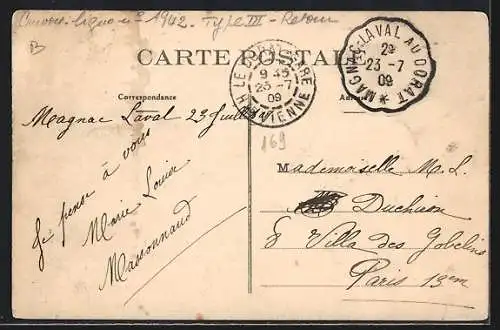 Convoyeur-ligne n° 1942. Type III - Retour
B
CARTE POSTALE
LE DORAT GARE
9 45
23 -7
09
HTE VIENNE
MAGNAC-LAVAL AU DORAT
2°
23 -7
09
Correspondance
169
Magnac Laval 23 Juillet
Je pense à vous
Marie Louise
Massonnaud
Mademoiselle M. L.
Duchiron
8 Villa des Gobelins
Paris 13em